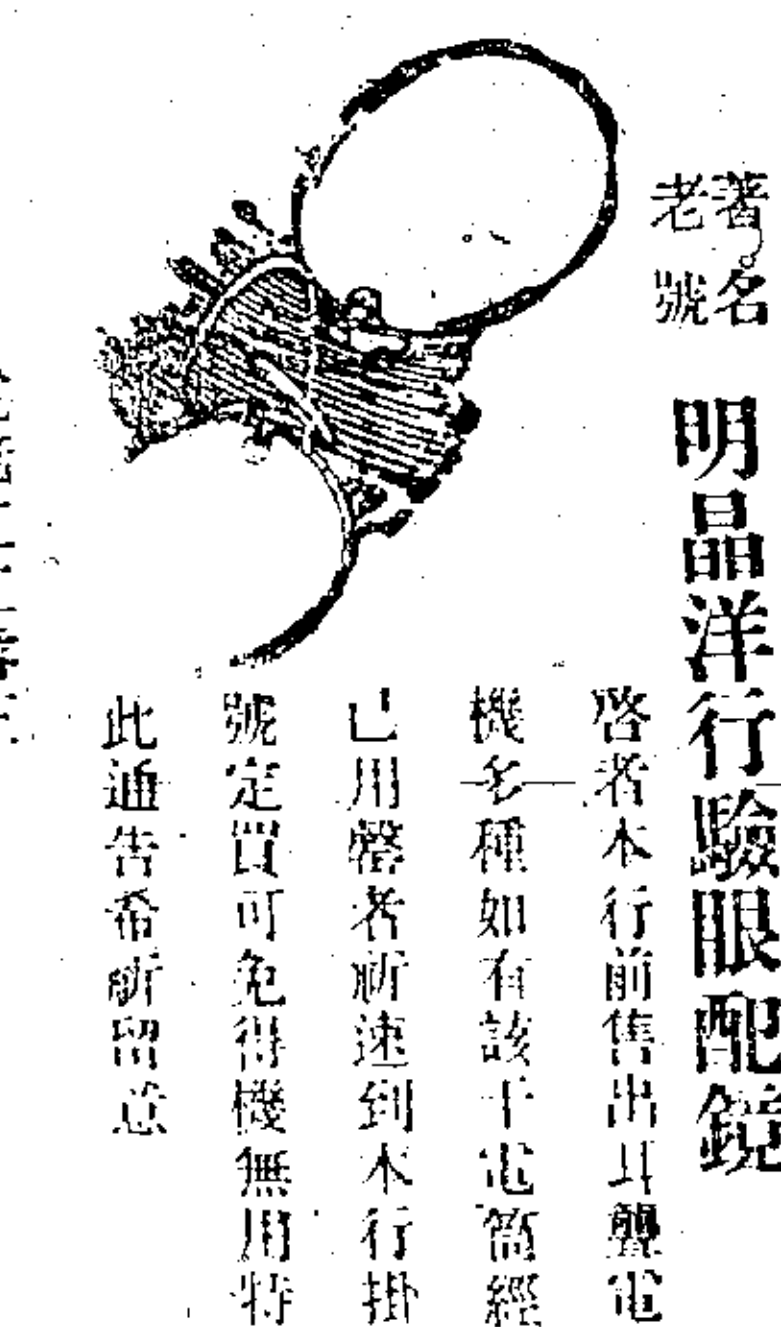 著名
老號
明晶洋行驗眼配鏡
啓者本行前售出耳聾電
機多種如有該干電筒經
已用罄者祈速到本行掛
號定買可免得機無用特
此通告希祈留意